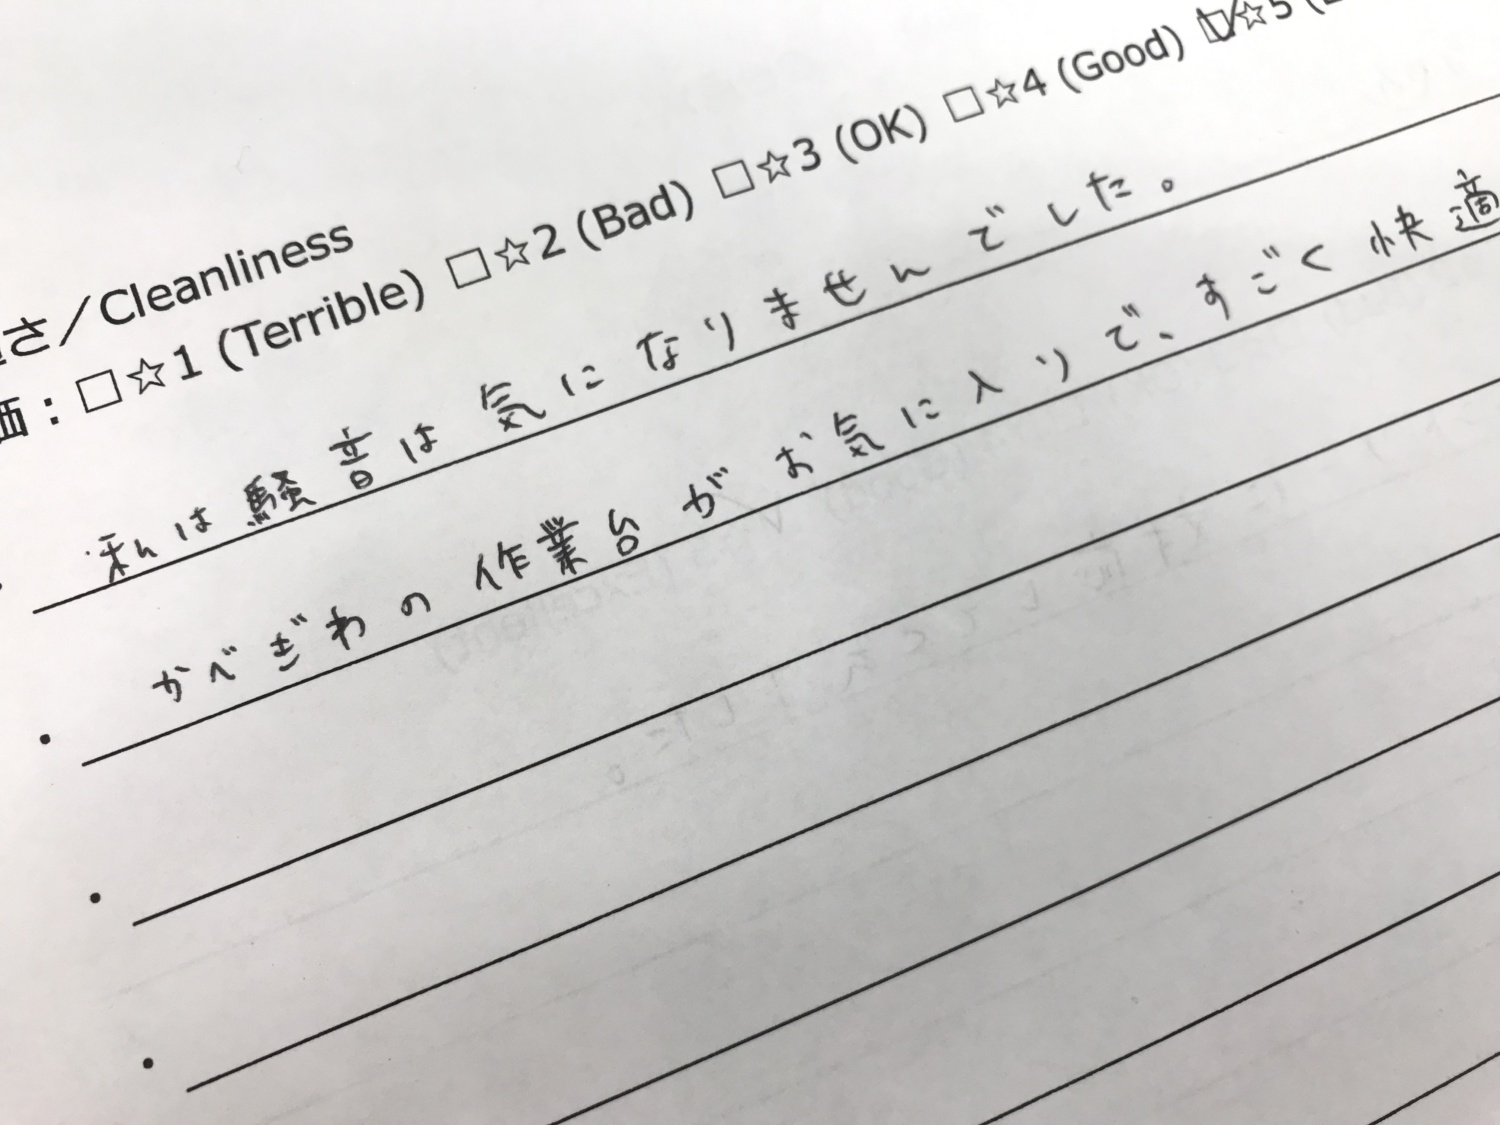 さ／Cleanliness
価：□☆1 (Terrible) □☆2 (Bad) □☆3 (OK) □☆4 (Good) ☑☆5
私は騒音は気になりませんでした。
・かべぎわの作業台がお気に入りで、すごく快適
・
・